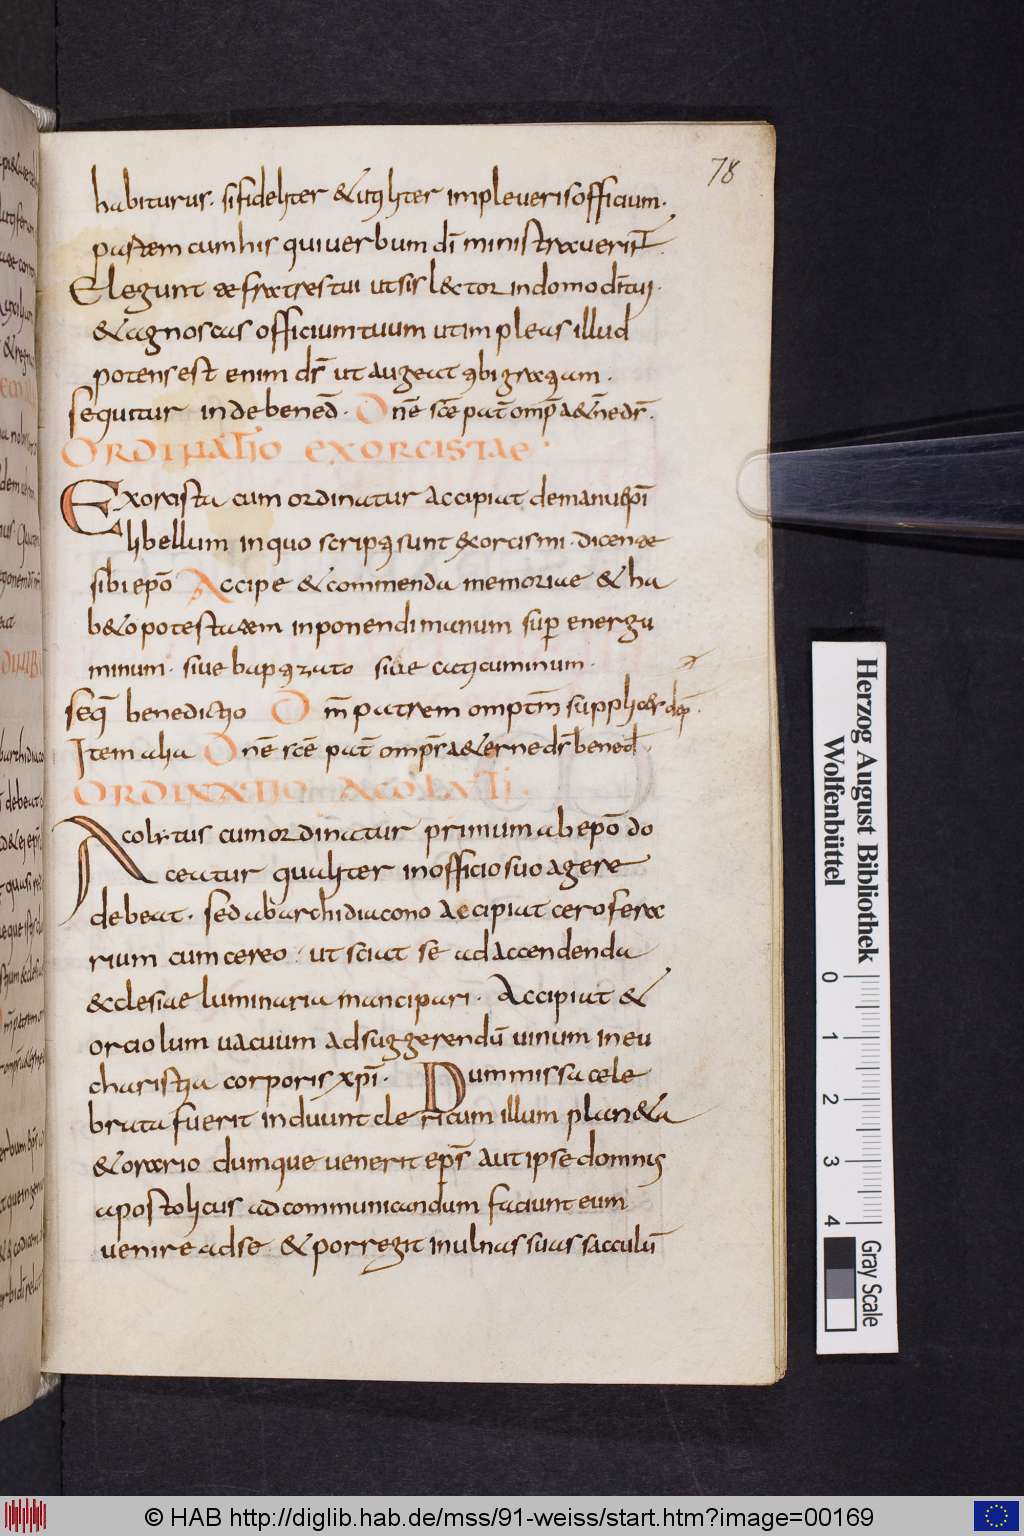 78
habiturus. si fideliter & utiliter impleveris officium.
partem cum his qui verbum dī ministraverint.
Elegunt te fratres tui ut sis lector in domo dī tui.
& agnoscas officium tuum ut impleas illud
potens est enim ds̄ ut augeat tibi gratiam.
sequitur inde bened̄. Dn̄e sc̄e pat̄ omp̄ a&ñe ds̄.
ORDINATIO EXORCISTAE.
Exorcista cum ordinatur accipiat de manu ep̄i
libellum in quo scripti sunt exorcismi. dicente
sibi ep̄o Accipe & commenda memoriae & ha
b&o potestatem inponendi manum sup̄ energu
minum. sive baptizato sive caticuminum.
seq̄ benedictio Dm̄ patrem omptm̄ supplic&
Item alia Dn̄e sc̄e pat̄ omp̄s a&erne ds̄ bened̄.
ORDINATIO ACOLATI.
Acolitus cum ordinatur primum ab ep̄o do
ceatur qualiter in officio suo agere
debeat. sed ab archidiacono accipiat cerofera
rium cum cereo. ut sciat se ad accendenda
&clesiae luminaria mancipari. Accipiat &
orciolum vacuum ad suggerendū vinum in eu
charistia corporis xp̄i. Dum missa cele
brata fuerit induunt clericum illum plan&a
& orario dumque venerit ep̄s aut ipse domnus
apostolicus ad communicandum faciunt eum
venire ad se & porregit in ulnas suas sacculū
Herzog August Bibliothek
Wolfenbüttel
0 1 2 3 4
Gray Scale
© HAB http://diglib.hab.de/mss/91-weiss/start.htm?image=00169